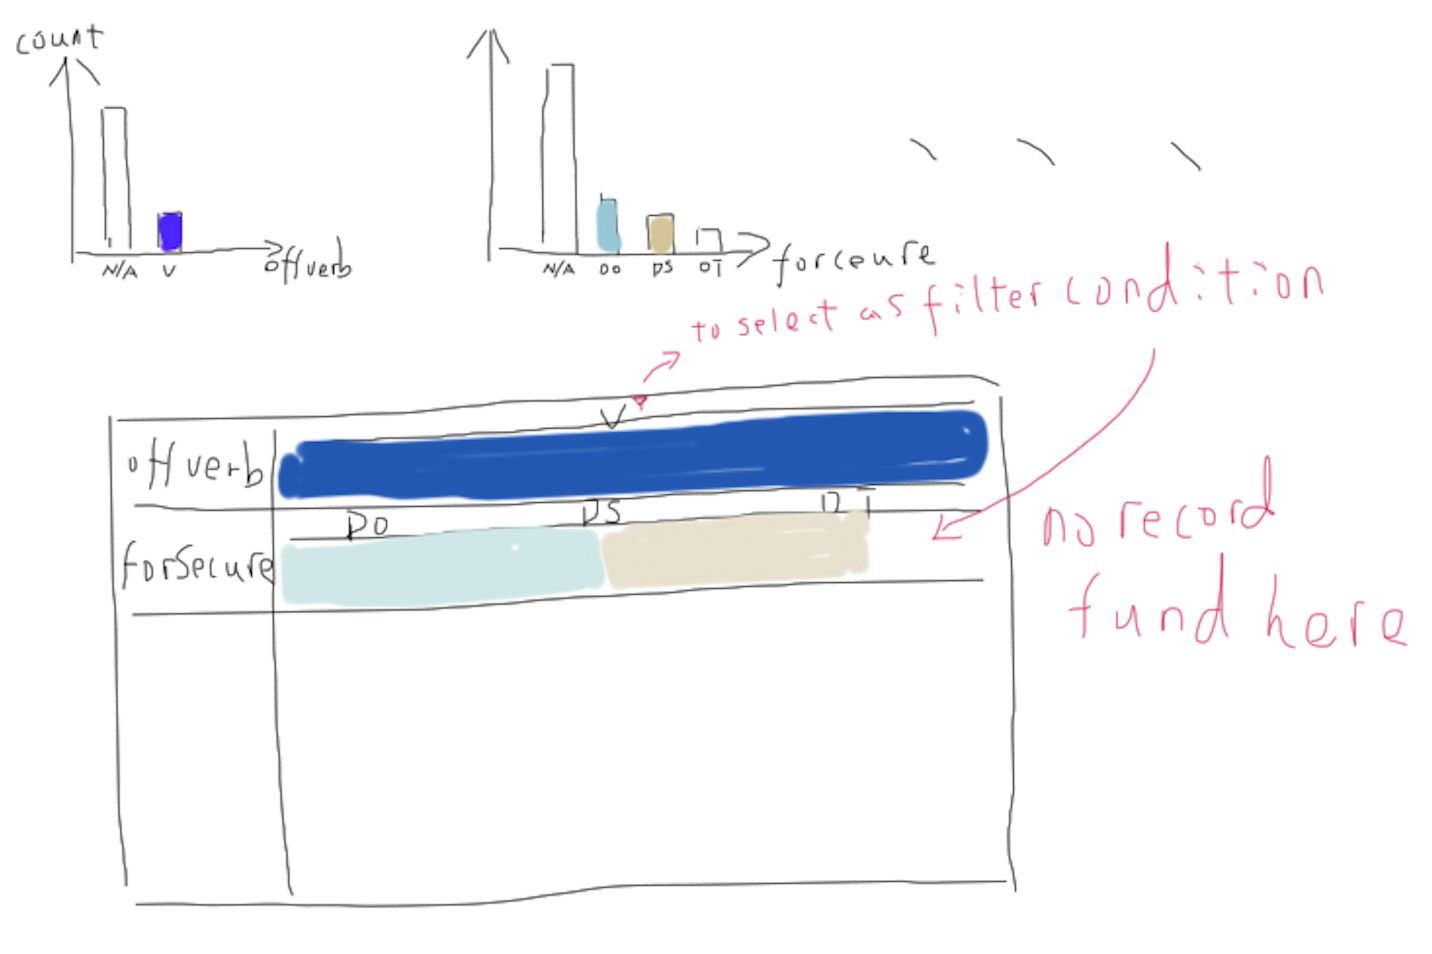 count
N/A V
offverb
N/A DO DS OT
forceure
to select as filter condition
V
offverb
DO DS OT
forSecure
no record
fund here